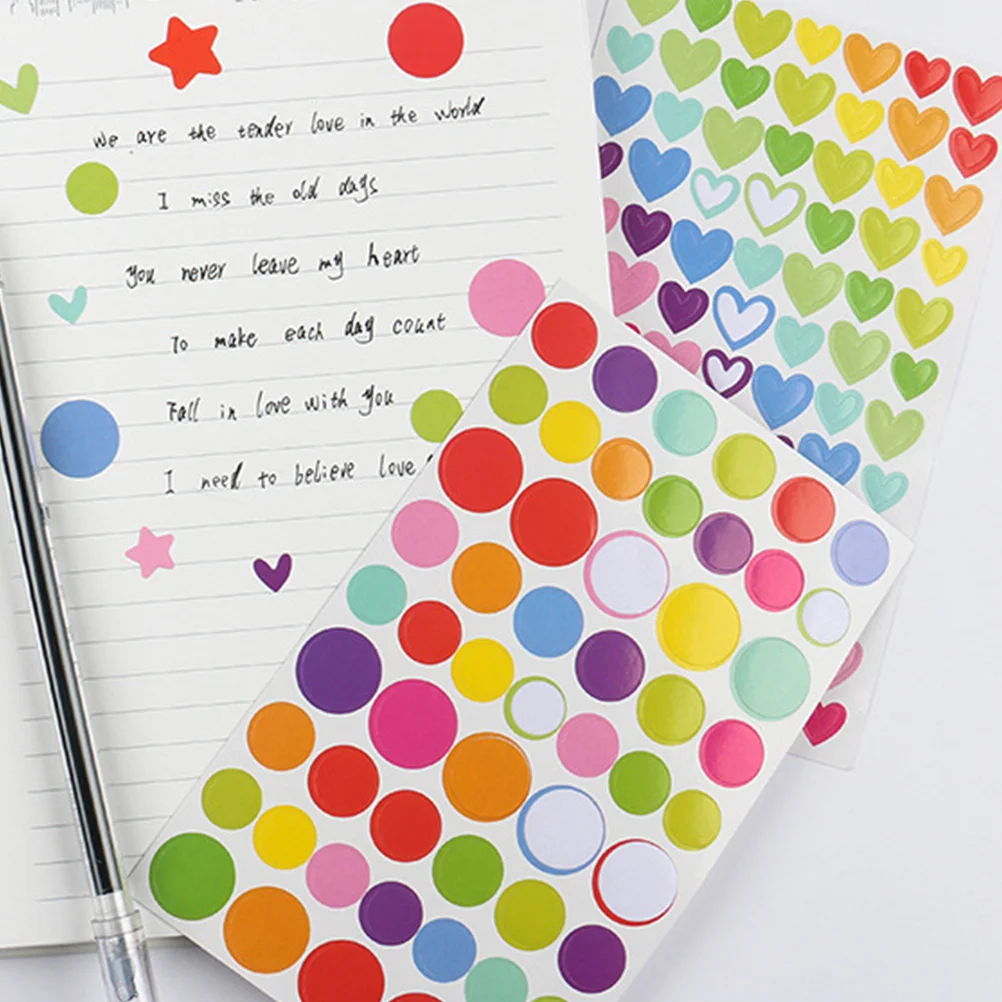 We are the tender love in the world
I miss the old days
You never leave my heart
To make each day count
Fall in love with you
I need to believe love